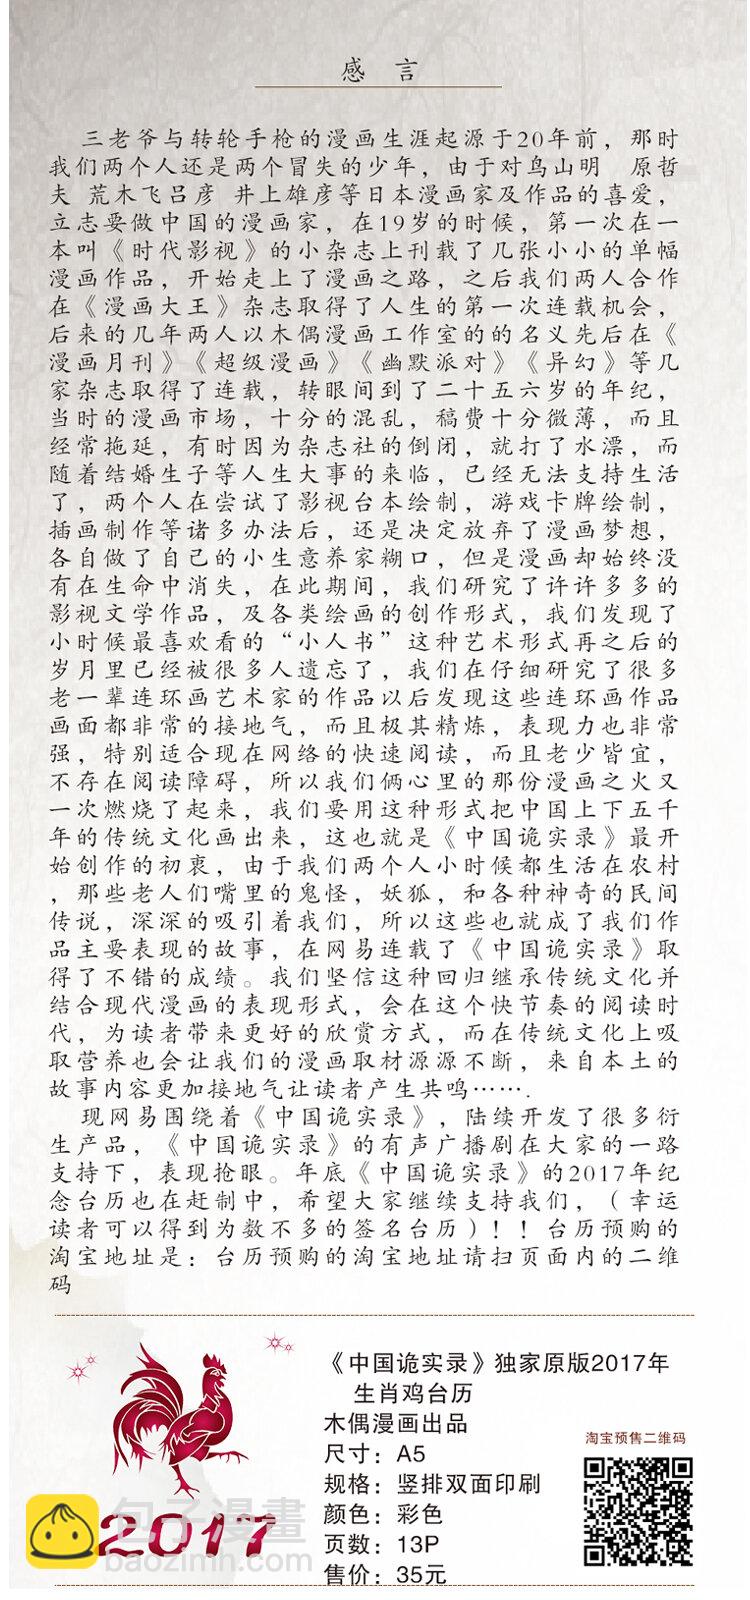 感 言
三老爷与转轮手枪的漫画生涯起源于20年前，那时
我们两个人还是两个冒失的少年，由于对鸟山明 原哲
夫 荒木飞吕彦 井上雄彦等日本漫画家及作品的喜爱，
立志要做中国的漫画家，在19岁的时候，第一次在一
本叫《时代影视》的小杂志上刊载了几张小小的单幅
漫画作品，开始走上了漫画之路，之后我们两人合作
在《漫画大王》杂志取得了人生的第一次连载机会，
后来的几年两人以木偶漫画工作室的的名义先后在《
漫画月刊》《超级漫画》《幽默派对》《异幻》等几
家杂志取得了连载，转眼间到了二十五六岁的年纪，
当时的漫画市场，十分的混乱，稿费十分微薄，而且
经常拖延，有时因为杂志社的倒闭，就打了水漂，而
随着结婚生子等人生大事的来临，已经无法支持生活
了，两个人在尝试了影视台本绘制，游戏卡牌绘制，
插画制作等诸多办法后，还是决定放弃了漫画梦想，
各自做了自己的小生意养家糊口，但是漫画却始终没
有在生命中消失，在此期间，我们研究了许许多多的
影视文学作品，及各类绘画的创作形式，我们发现了
小时候最喜欢看的“小人书”这种艺术形式再之后的
岁月里已经被很多人遗忘了，我们在仔细研究了很多
老一辈连环画艺术家的作品以后发现这些连环画作品
画面都非常的接地气，而且极其精炼，表现力也非常
强，特别适合现在网络的快速阅读，而且老少皆宜，
不存在阅读障碍，所以我们俩心里的那份漫画之火又
一次燃烧了起来，我们要用这种形式把中国上下五千
年的传统文化画出来，这也就是《中国诡实录》最开
始创作的初衷，由于我们两个人小时候都生活在农村
，那些老人们嘴里的鬼怪，妖狐，和各种神奇的民间
传说，深深的吸引着我们，所以这些也就成了我们作
品主要表现的故事，在网易连载了《中国诡实录》取
得了不错的成绩。我们坚信这种回归继承传统文化并
结合现代漫画的表现形式，会在这个快节奏的阅读时
代，为读者带来更好的欣赏方式，而在传统文化上吸
取营养也会让我们的漫画取材源源不断，来自本土的
故事内容更加接地气让读者产生共鸣…….
现网易围绕着《中国诡实录》，陆续开发了很多衍
生产品，《中国诡实录》的有声广播剧在大家的一路
支持下，表现抢眼。年底《中国诡实录》的2017年纪
念台历也在赶制中，希望大家继续支持我们，（幸运
读者可以得到为数不多的签名台历）！！台历预购的
淘宝地址是：台历预购的淘宝地址请扫页面内的二维
码
《中国诡实录》独家原版2017年
生肖鸡台历
木偶漫画出品
尺寸：A5
规格：竖排双面印刷
颜色：彩色
页数：13P
售价：35元
淘宝预售二维码
2017
包子漫畫
baozimh.com